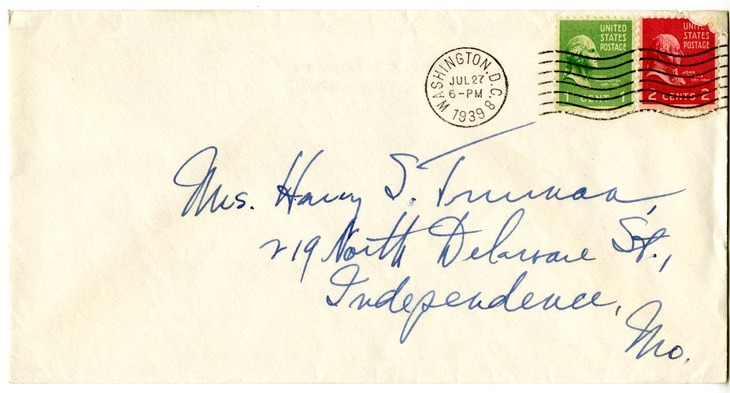 UNITED
STATES
POSTAGE
1 CENT 1
UNITED
STATES
POSTAGE
2 CENTS 2
WASHINGTON, D.C. 8
JUL 27
6-PM
1939
Mrs. Harry S. Truman,
219 North Delaware St.,
Independence,
Mo.